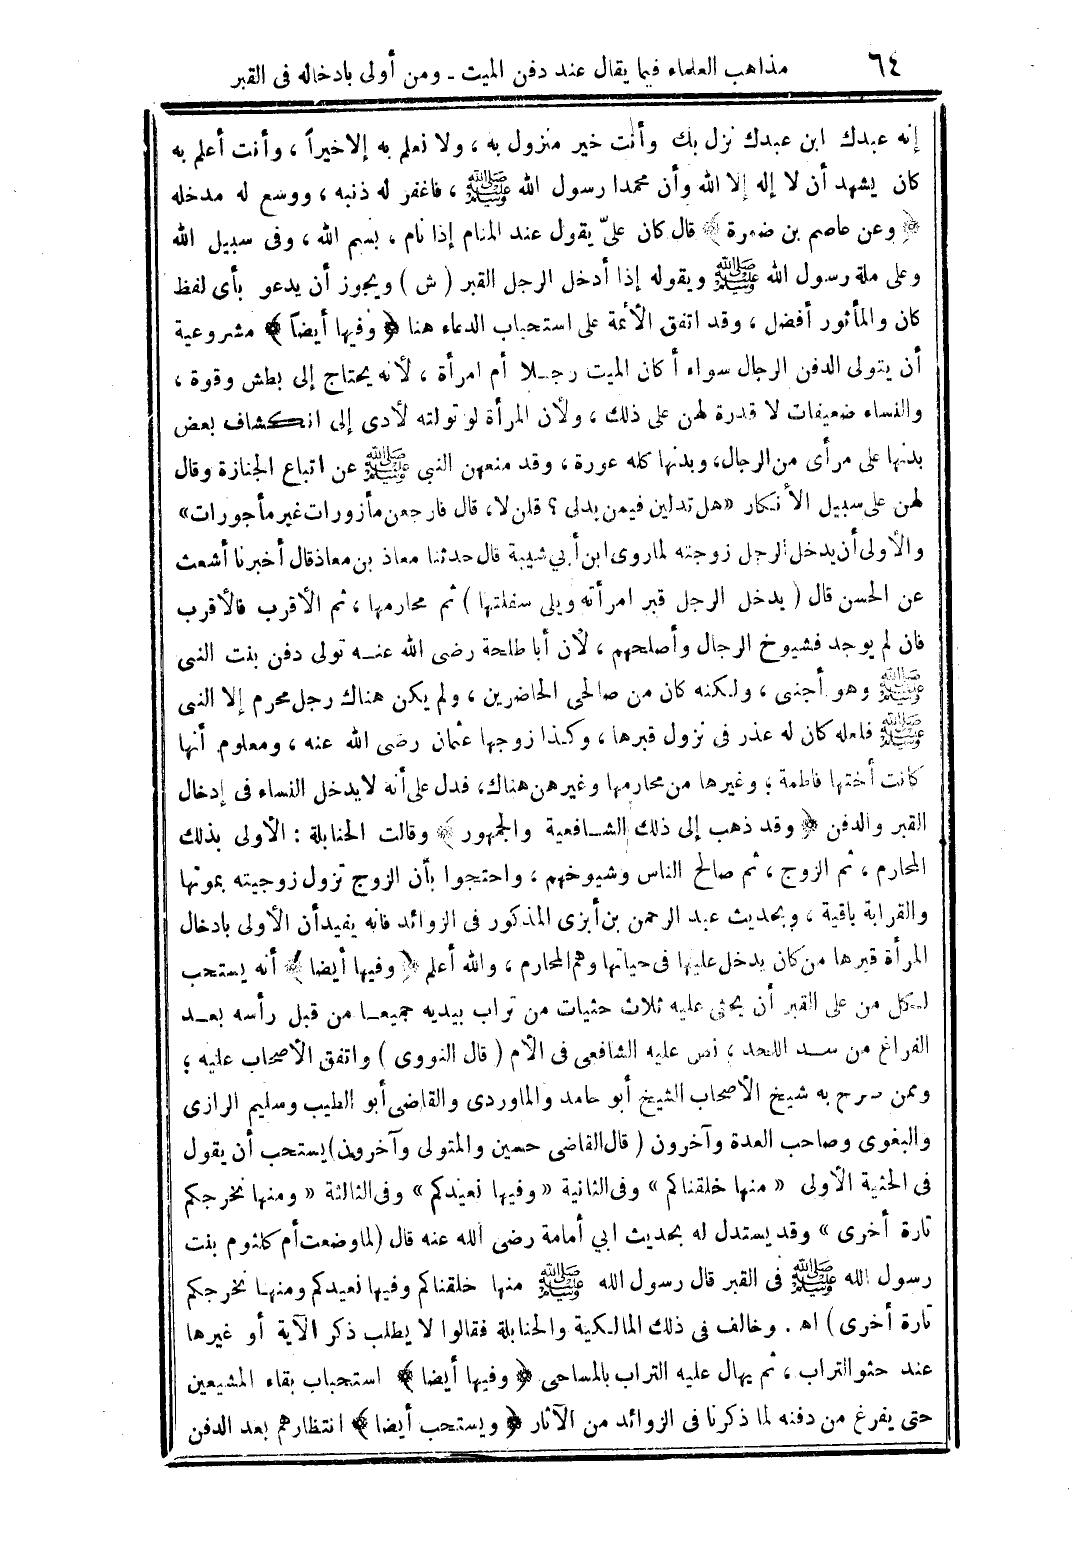 ٦٤
مذاهب العلماء فيما يقال عند دفن الميت - ومن أولى بادخاله فى القبر
إنه عبدك ابن عبدك نزل بك وأنت خير منزول به ، ولا نعلم به إلاخيراً ، وأنت أعلم به
كان يشهد أن لا إله إلا الله وأن محمدا رسول الله ﷺ ، فاغفر له ذنبه ، ووسع له مدخله
﴿ وعن عاصم بن ضمرة ﴾ قال كان علىّ يقول عند المنام إذا نام ، بسم الله ، وفى سبيل الله
وعلى ملة رسول الله ﷺ ويقوله إذا أدخل الرجل القبر ( ش ) ويجوز أن يدعو بأى لفظ
كان والمأثور أفضل ، وقد اتفق الأئمة على استحباب الدعاء هنا ﴿ وفيها أيضاً ﴾ مشروعية
أن يتولى الدفن الرجال سواء أكان الميت رجلا أم امرأة ، لأنه يحتاج إلى بطش وقوة ،
والنساء ضعيفات لا قدرة لهن على ذلك ، ولأن المرأة لو تولته لأدى إلى انكشاف بعض
بدنها على مرأى من الرجال، وبدنها كله عورة ، وقد منعهن النبى ﷺ عن اتباع الجنازة وقال
لهن على سبيل الأنكار «هل تدلين فيمن يدلى ؟ قلن لا، قال فارجعن مأزورات غير مأجورات»
والأولى أن يدخل الرجل زوجته لما روى ابن أبي شيبة قال حدثنا معاذ بن معاذ قال أخبرنا أشعث
عن الحسن قال ( يدخل الرجل قبر امرأته ويلى سفلتها ) ثم محارمها ، ثم الأقرب فالأقرب
فان لم يوجد فشيوخ الرجال وأصلحهم ، لأن أبا طلحة رضى الله عنه تولى دفن بنت النبى
ﷺ وهو أجنبى ، ولكنه كان من صالحى الحاضرين ، ولم يكن هناك رجل محرم إلا النبى
ﷺ فلعله كان له عذر فى نزول قبرها ، وكذا زوجها عثمان رضى الله عنه ، ومعلوم أنها
كانت أختها فاطمة ؛ وغيرها من محارمها وغيرهن هناك، فدل على أنه لا يدخل النساء فى إدخال
القبر والدفن ﴿ وقد ذهب إلى ذلك الشافعية والجمهور ﴾ وقالت الحنابلة : الأولى بذلك
المحارم ، ثم الزوج ، ثم صالح الناس وشيوخهم ، واحتجوا بأن الزوج تزول زوجيته بموتها
والقرابة باقية ، وبحديث عبد الرحمن بن أبزى المذكور فى الزوائد فانه يفيد أن الأولى بادخال
المرأة قبرها من كان يدخل عليها فى حياتها وهم المحارم ، والله أعلم ﴿ وفيها أيضا ﴾ أنه يستحب
لكل من على القبر أن يحثى عليه ثلاث حثيات من تراب بيديه جميعا من قبل رأسه بعد
الفراغ من سد اللحد ؛ نص عليه الشافعى فى الأم ( قال النووى ) واتفق الأصحاب عليه ؛
وممن صرح به شيخ الأصحاب الشيخ أبو حامد والماوردى والقاضى أبو الطيب وسليم الرازى
والبغوى وصاحب العدة وآخرون ( قال القاضى حسين والمتولى وآخرون) يستحب أن يقول
فى الحثية الأولى « منها خلقناكم » وفى الثانية « وفيها نعيدكم » وفى الثالثة « ومنها نخرجكم
تارة أخرى » وقد يستدل له بحديث ابي أمامة رضى الله عنه قال (لما وضعت أم كلثوم بنت
رسول الله ﷺ فى القبر قال رسول الله ﷺ منها خلقناكم وفيها نعيدكم ومنها نخرجكم
تارة أخرى ) اهـ . وخالف فى ذلك المالكية والحنابلة فقالوا لا يطلب ذكر الآية أو غيرها
عند حثو التراب ، ثم يهال عليه التراب بالمساحى ﴿ وفيها أيضا ﴾ استحباب بقاء المشيعين
حتى يفرغ من دفنه لما ذكرنا فى الزوائد من الآثار ﴿ ويستحب أيضا ﴾ انتظارهم بعد الدفن